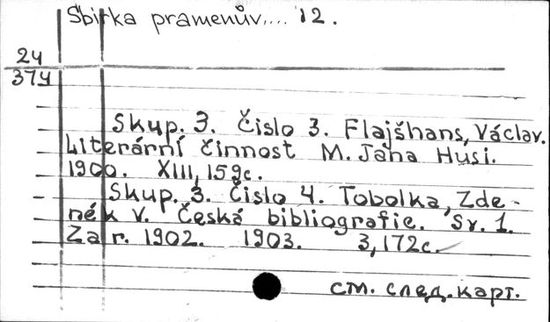 Sbirka pramenův.... 12.
24
374
Skup. 3. Čislo 3. Flajšhans, Václav.
Literární činnost M. Jana Husi.
1900. XIII, 159c.
Skup. 3. Čislo 4. Tobolka, Zde-
něk V. Česká bibliografie. Sv. 1.
Za r. 1902. 1903. 3,172c.
см. след. карт.